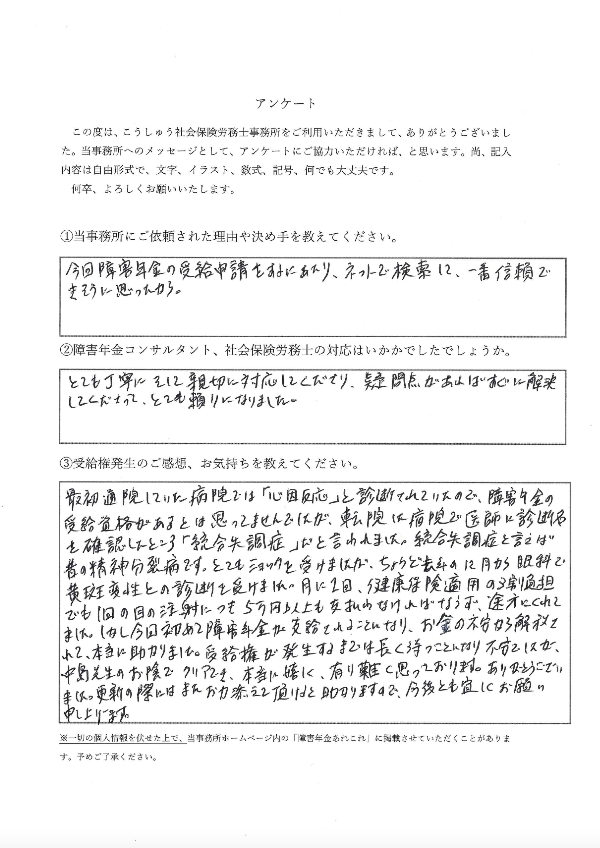 アンケート
この度は、こうしゅう社会保険労務士事務所をご利用いただきまして、ありがとうございまし
た。当事務所へのメッセージとして、アンケートにご協力いただければ、と思います。尚、記入
内容は自由形式で、文字、イラスト、数式、記号、何でも大丈夫です。
何卒、よろしくお願いいたします。
①当事務所にご依頼された理由や決め手を教えてください。
今回障害年金の受給申請をするにあたり、ネットで検索して、一番信頼で
きそうに思ったから。
②障害年金コンサルタント、社会保険労務士の対応はいかがでしたでしょうか。
とても丁寧にそして親切に対応してくださり、疑問点があればすぐに解決
してくださって、とても頼りになりました。
③受給権発生のご感想、お気持ちを教えてください。
最初通院していた病院では「心因反応」と診断されていたので、障害年金の
受給資格があるとは思ってませんでしたが、転院した病院で医師に診断名
を確認したところ「統合失調症」だと言われました。統合失調症と言えば
昔の精神分裂病です。とてもショックを受けましたが、ちょうど去年の12月から眼科で
黄斑変性との診断を受けました。月に1回、健康保険適用の3割負担
でも1回の目の注射につき5万円以上も支払わなければならず、途方にくれて
ました。しかし今回初めて障害年金が支給されることになり、お金の不安から解放さ
れて、本当に助かりました。受給権が発生するまでは長く待つことになり不安でしたが、
中島先生のお陰でクリアでき、本当に嬉しく、有り難く思っております。ありがとうござい
ました。更新の際にはまたお力添えて頂けると助かりますので、今後とも宜しくお願い
申し上げます。
※一切の個人情報を伏せた上で、当事務所ホームページ内の「障害年金あれこれ」に掲載させていただくことがありま
す。予めご了承ください。